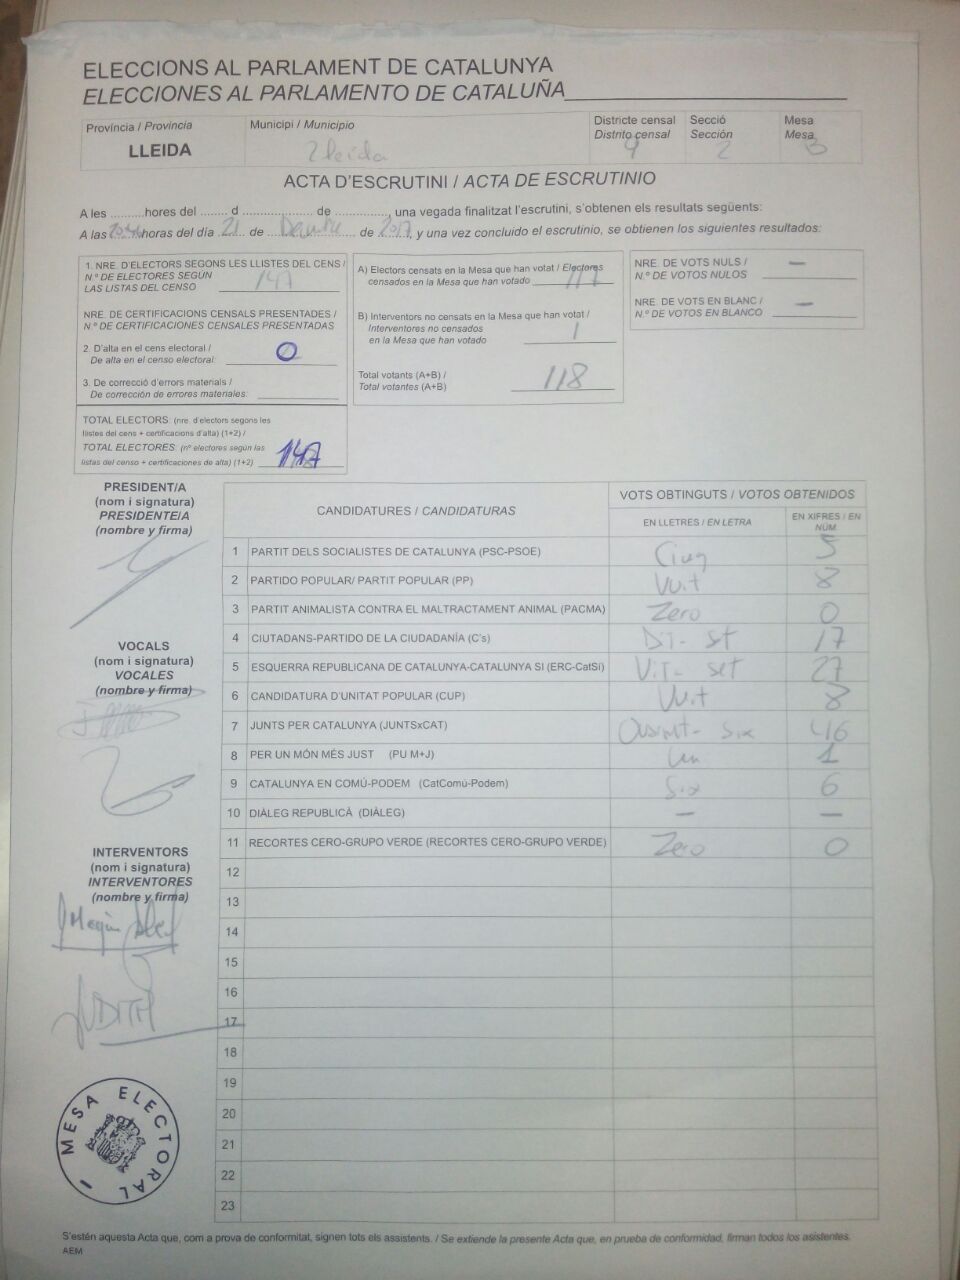 ELECCIONS AL PARLAMENT DE CATALUNYA
ELECCIONES AL PARLAMENTO DE CATALUÑA
Província / Provincia
LLEIDA
Municipi / Municipio
Lleida
Districte censal
Distrito censal
4
Secció
Sección
2
Mesa
Mesa
B
ACTA D'ESCRUTINI / ACTA DE ESCRUTINIO
A les ..........hores del ........ d ..................... de ................, una vegada finalitzat l'escrutini, s'obtenen els resultats següents:
A las horas del día 21 de de 2017, y una vez concluido el escrutinio, se obtienen los siguientes resultados:
1. NRE. D'ELECTORS SEGONS LES LLISTES DEL CENS /
N.º DE ELECTORES SEGÚN
LAS LISTAS DEL CENSO 147
NRE. DE CERTIFICACIONS CENSALS PRESENTADES /
N.º DE CERTIFICACIONES CENSALES PRESENTADAS
2. D'alta en el cens electoral /
De alta en el censo electoral: 0
3. De correcció d'errors materials /
De corrección de errores materiales:
TOTAL ELECTORS: (nre. d'electors segons les
llistes del cens + certificacions d'alta) (1+2) /
TOTAL ELECTORES: (nº electores según las
listas del censo + certificaciones de alta) (1+2) 147
A) Electors censats en la Mesa que han votat / Electores
censados en la Mesa que han votado 117
B) Interventors no censats en la Mesa que han votat /
Interventores no censados
en la Mesa que han votado 1
Total votants (A+B) /
Total votantes (A+B) 118
NRE. DE VOTS NULS /
N.º DE VOTOS NULOS —
NRE. DE VOTS EN BLANC /
N.º DE VOTOS EN BLANCO —
PRESIDENT/A
(nom i signatura)
PRESIDENTE/A
(nombre y firma)
VOCALS
(nom i signatura)
VOCALES
(nombre y firma)
INTERVENTORS
(nom i signatura)
INTERVENTORES
(nombre y firma)
JUDITH
MESA ELECTORAL
CANDIDATURES / CANDIDATURAS
VOTS OBTINGUTS / VOTOS OBTENIDOS
EN LLETRES / EN LETRA
EN XIFRES / EN NÚM.
1 PARTIT DELS SOCIALISTES DE CATALUNYA (PSC-PSOE) Cinq 5
2 PARTIDO POPULAR/ PARTIT POPULAR (PP) Vuit 8
3 PARTIT ANIMALISTA CONTRA EL MALTRACTAMENT ANIMAL (PACMA) Zero 0
4 CIUTADANS-PARTIDO DE LA CIUDADANÍA (C's) 17
5 ESQUERRA REPUBLICANA DE CATALUNYA-CATALUNYA SI (ERC-CatSí) 27
6 CANDIDATURA D'UNITAT POPULAR (CUP) Vuit 8
7 JUNTS PER CATALUNYA (JUNTSxCAT) 46
8 PER UN MÓN MÉS JUST (PU M+J) un 1
9 CATALUNYA EN COMÚ-PODEM (CatComú-Podem) Six 6
10 DIÀLEG REPUBLICÀ (DIÀLEG) — —
11 RECORTES CERO-GRUPO VERDE (RECORTES CERO-GRUPO VERDE) Zero 0
12
13
14
15
16
17
18
19
20
21
22
23
S'estén aquesta Acta que, com a prova de conformitat, signen tots els assistents. / Se extiende la presente Acta que, en prueba de conformidad, firman todos los asistentes.
AEM